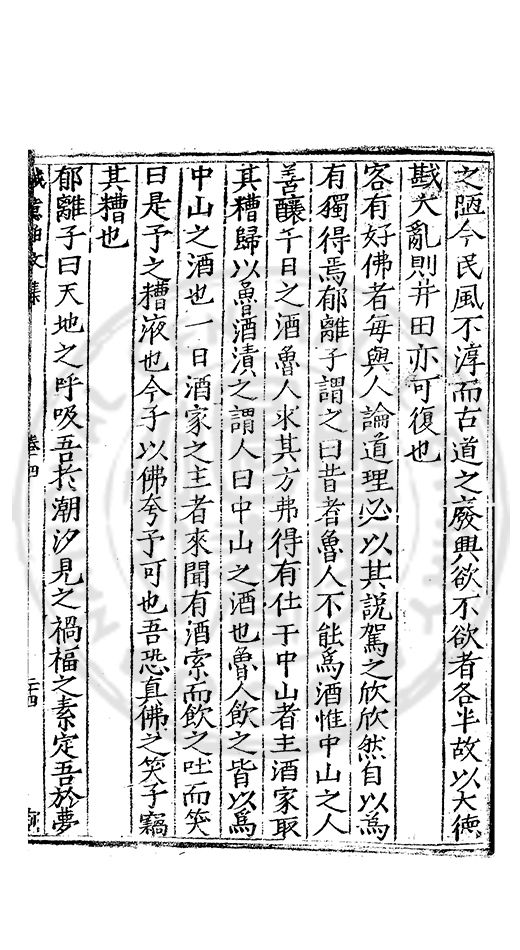 之陋今民風不淳而古道之廢興欲不欲者各半故以大德
戡大亂則井田亦可復也
客有好佛者每與人論道理必以其說駕之欣欣然自以為
有獨得焉郁離子謂之曰昔者魯人不能為酒惟中山之人
善釀千日之酒魯人求其方弗得有仕于中山者主酒家取
其糟歸以魯酒漬之謂人曰中山之酒也魯人飲之皆以為
中山之酒也一日酒家之主者來聞有酒索而飲之吐而笑
曰是予之糟液也今子以佛夸予可也吾恐真佛之笑子竊
其糟也
郁離子曰天地之呼吸吾於潮汐見之禍福之素定吾於夢
伯文集
卷四
二十四